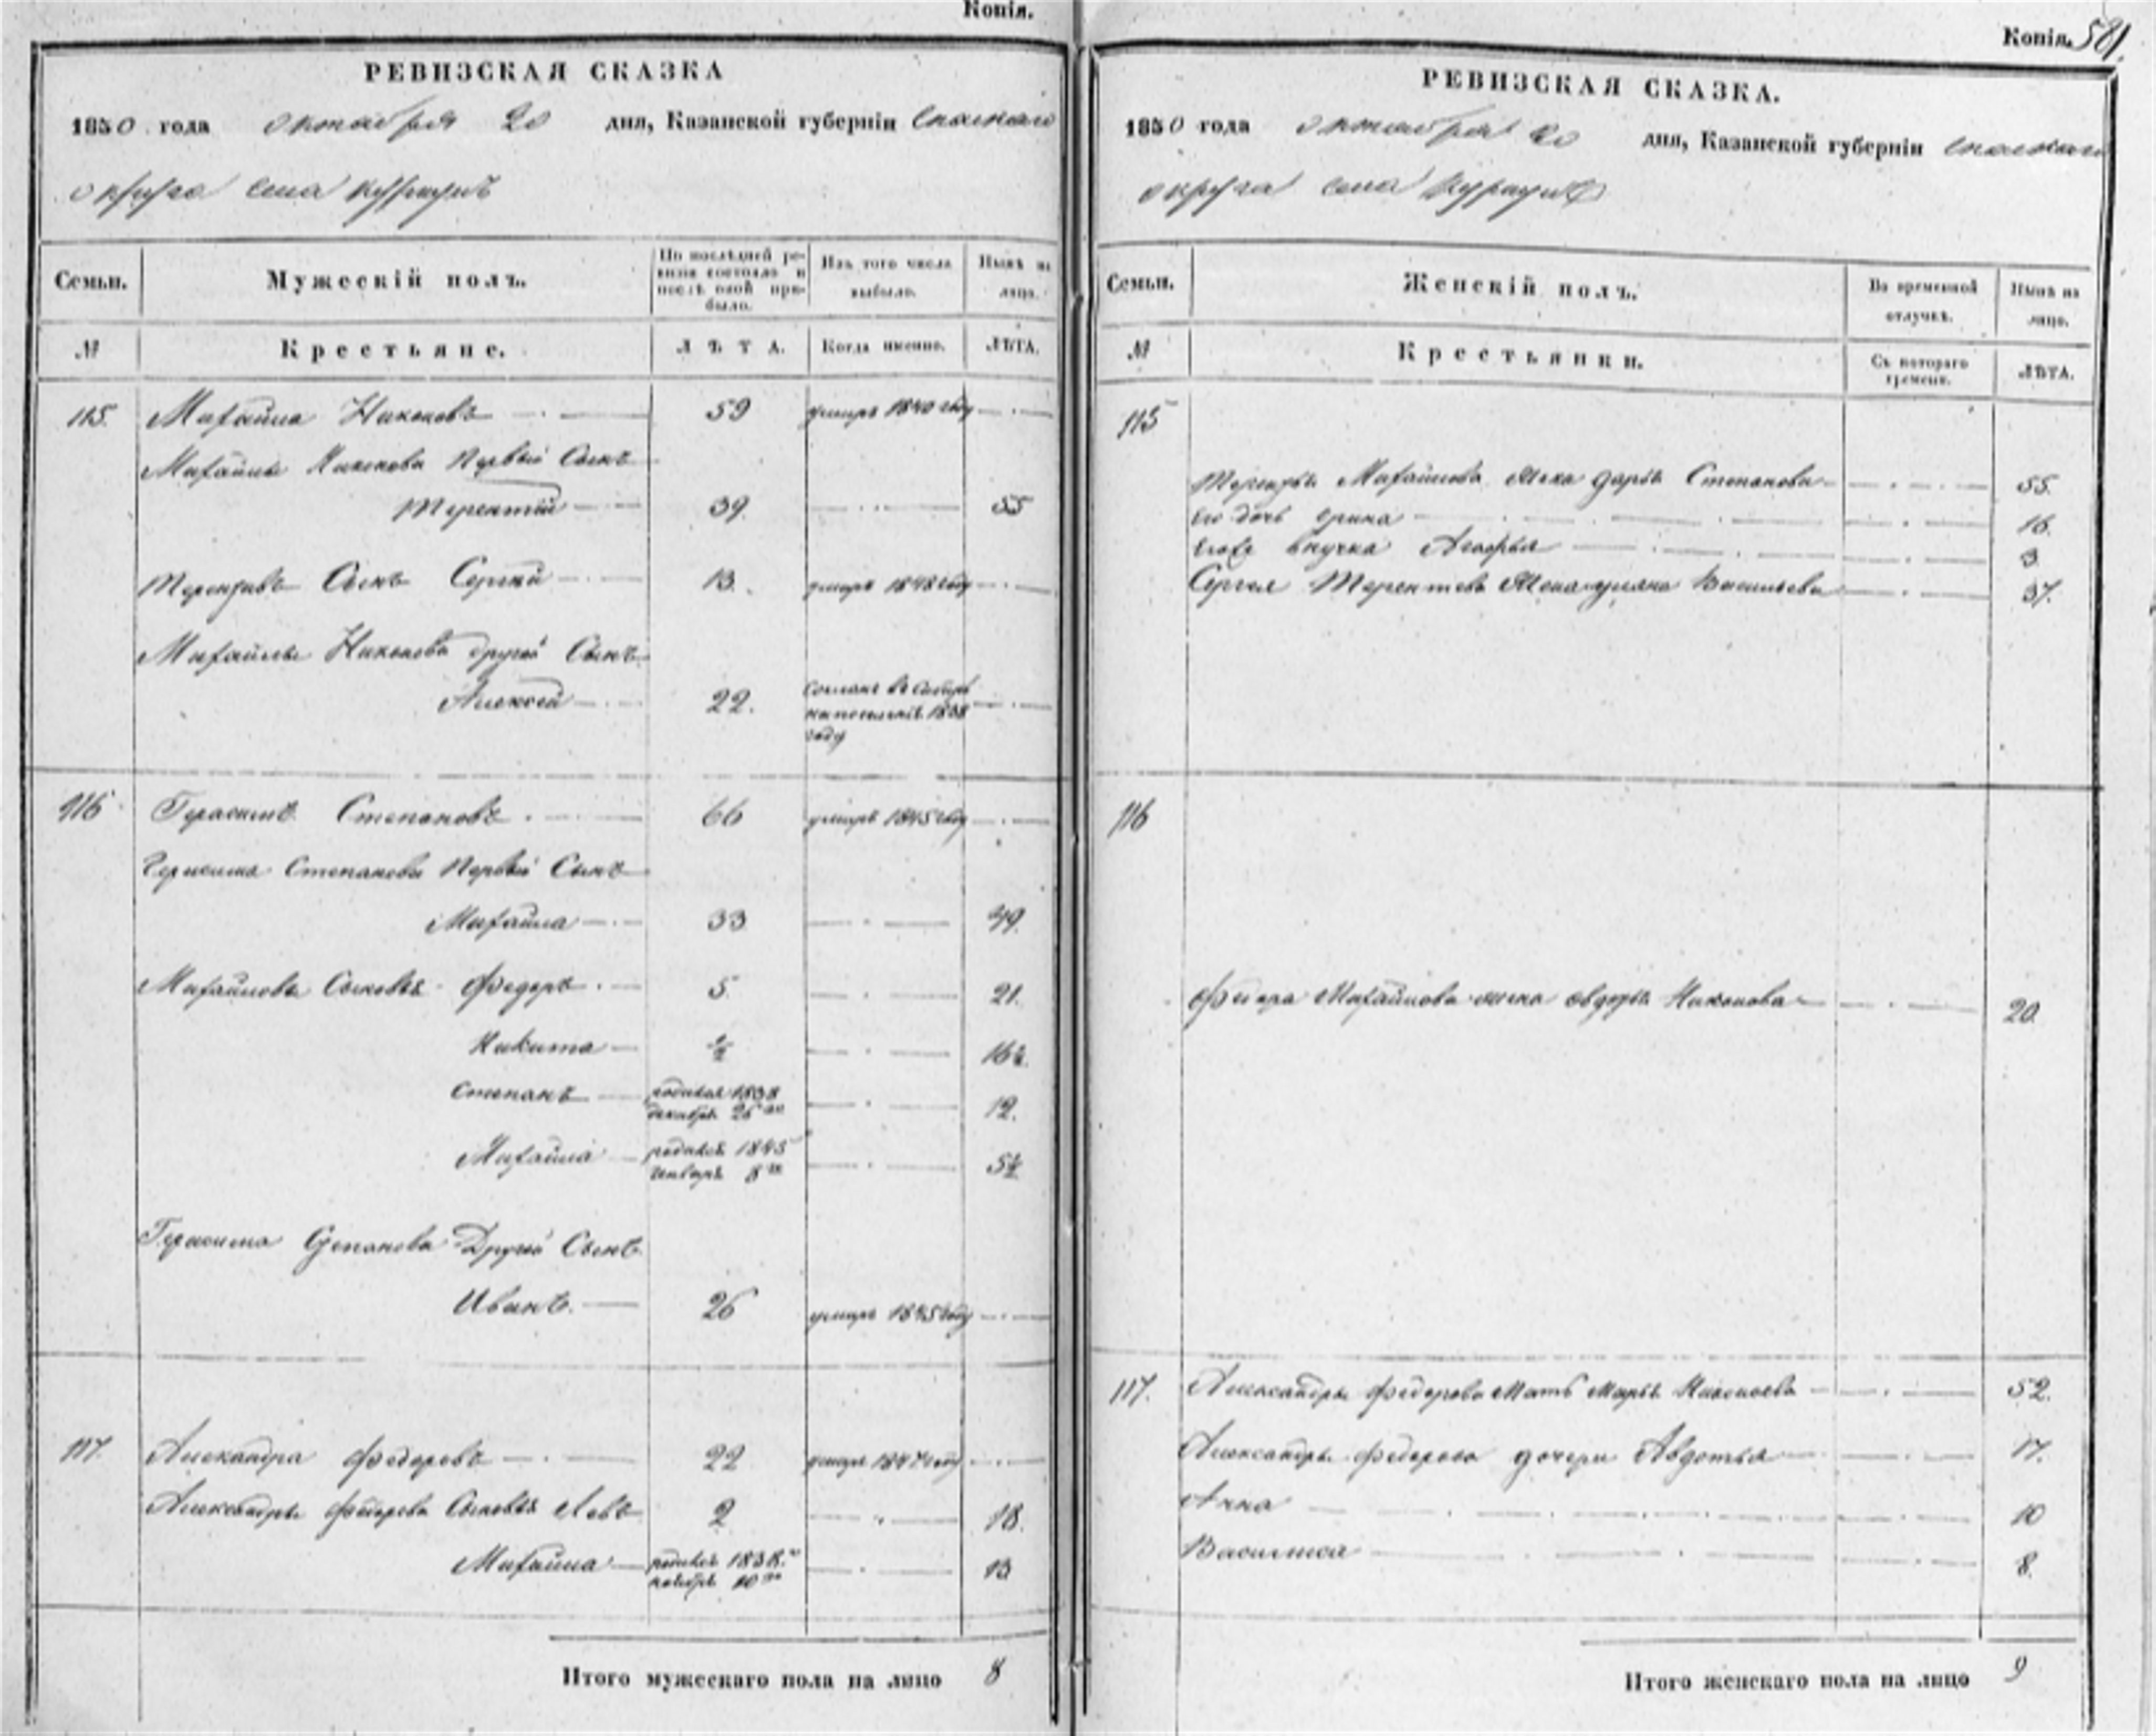 Копія.
РЕВИЗСКАЯ СКАЗКА
1850 года октября 20 дня, Казанской губерніи Спаскаго
округа села
Семьи.
Мужескій полъ.
По послѣдней ре-
визіи состояло и
послѣ оной при-
было.
Изъ того числа
выбыло.
Нынѣ на
лицо.
№
Крестьяне.
ЛѢТА.
Когда именно.
ЛѢТА.
115. Михайла Никоновъ 59 умеръ 1840 году
Михайлы Никонова Первый Сынъ
Терентій 39. 55
Сынъ Сергей 13. умеръ 1848 году
Михайлы Никонова другой Сынъ
Алексей 22. Сосланъ въ Сибирь
на поселеніе 1838
году
116 Герасимъ Степановъ 66 умеръ 1845 году
Герасима Степанова Первый Сынъ
Михайла 33 49.
Михайловы Сыновья Федоръ 5. 21.
Никита ½ 16½.
Степанъ родился 1838 12.
декабря 26го
Михайла родился 1845 5½
Января 8го
Герасима Степанова Другой Сынъ
Иванъ. 26 умеръ 1845 году
117. Александра Федоровъ 22 умеръ 1847 году
Александры Федорова Сыновья Левъ 2 18.
Михайла родился 1838. 13
ноября 10го
Итого мужескаго пола на лицо 8
Копія. 581.
РЕВИЗСКАЯ СКАЗКА.
1850 года октября 20 дня, Казанской губерніи Спаскаго
округа села
Семьи.
Женскій полъ.
Во временной
отлучкѣ.
Нынѣ на
лицо.
№
Крестьянки.
Съ котораго
времени.
ЛѢТА.
115
Михайлова Жена Дарья Степанова 55.
Его дочь Ирина 16.
внучка Агафья 3.
Сергея Терентьева Жена Ульяна Васильева 37.
116
Федора Михайлова жена Авдотья Никонова 20.
117. Александры Федорова Мать Марья 52.
Александры Федорова дочери Авдотья 17.
Анна 10
Василиса 8.
Итого женскаго пола на лицо 9